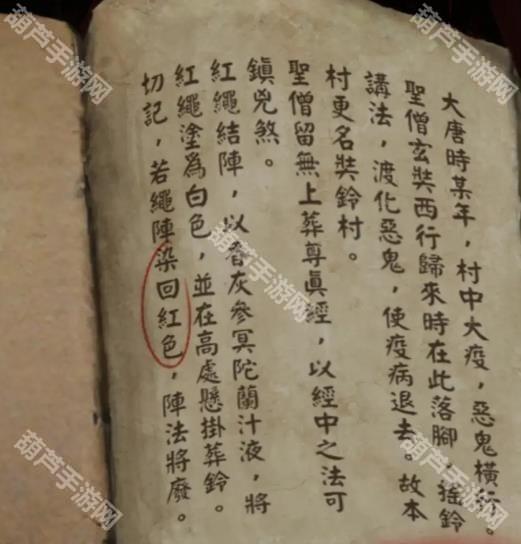 大唐時某年，村中大疫，惡鬼橫行。
聖僧玄奘西行歸來時在此落腳，搖鈴
講法，渡化惡鬼，使疫病退去。故本
村更名奘鈴村。
聖僧留無上葬尊真經，以經中之法可
鎮兇煞。
紅繩結陣，以香灰參冥陀蘭汁液，將
紅繩塗爲白色，並在高處懸掛葬鈴。
切記，若繩陣染回紅色，陣法將廢。
葫芦手游网
葫芦手游网
葫芦手游网
葫芦手游网
葫芦手游网